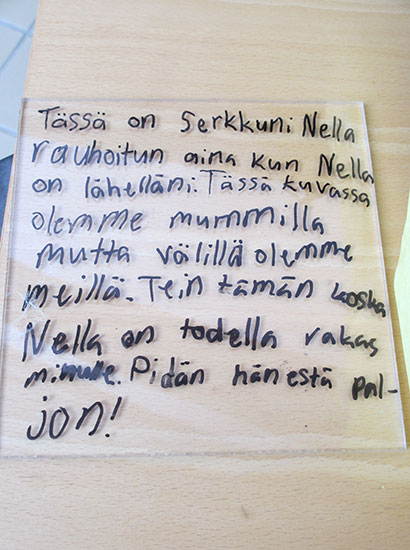 Tässä on serkkuni Nella
rauhoitun aina kun Nella
on lähelläni. Tässä kuvassa
olemme mummilla
mutta välillä olemme
meillä. Tein tämän koska
Nella on todella rakas
minulle. Pidän hänestä pal-
jon!